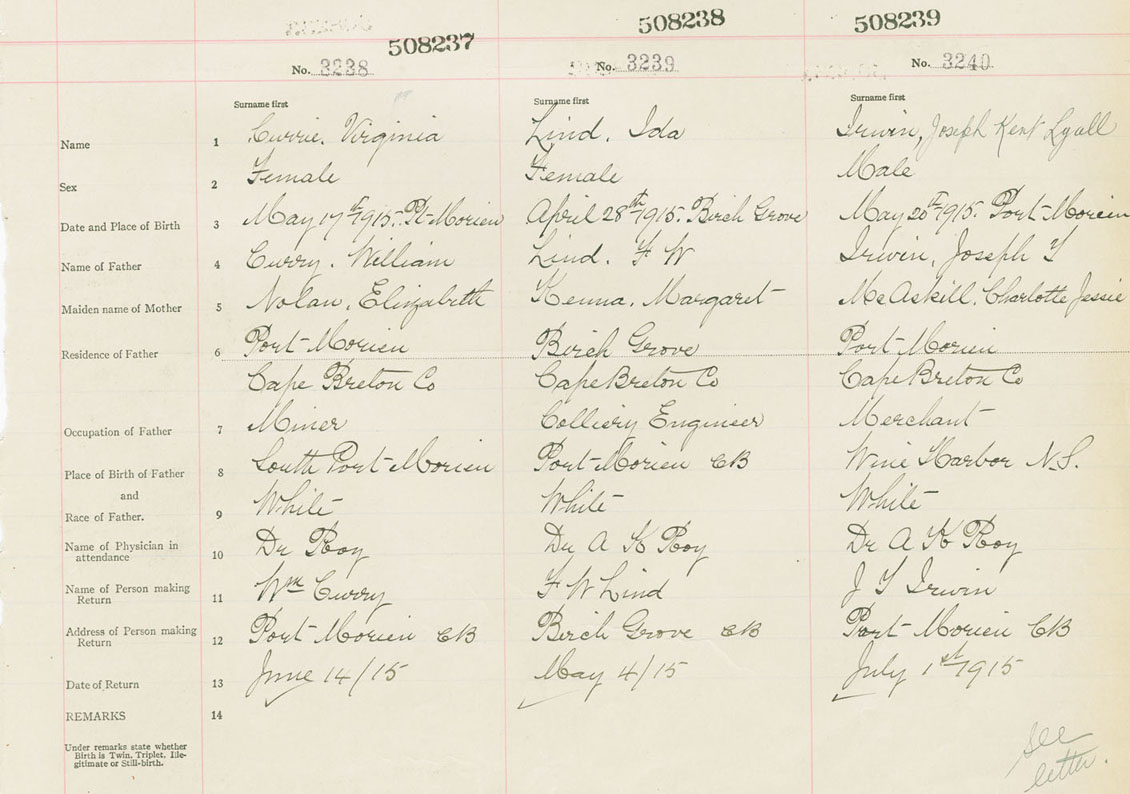 508237 508238 508239
No. 3238 No. 3239 No. 3240
Surname first Surname first Surname first
Name 1 Currie. Virginia Lind. Ida Irwin, Joseph Kent Lyall
Sex 2 Female Female Male
Date and Place of Birth 3 May 17th 1915. Pt-Morien April 28th 1915. Birch Grove May 20th 1915. Port-Morien
Name of Father 4 Curry. William Lind. F W Irwin, Joseph Y
Maiden name of Mother 5 Nolan, Elizabeth Kenna, Margaret McAskill, Charlotte Jessie
Residence of Father 6 Port-Morien Birch Grove Port-Morien
Cape Breton Co Cape Breton Co Cape Breton Co
Occupation of Father 7 Miner Colliery Engineer Merchant
Place of Birth of Father 8 South Port-Morien Port-Morien CB Wine Harbor N.S.
and
Race of Father. 9 White White White
Name of Physician in
attendance 10 Dr Roy Dr A K Roy Dr A K Roy
Name of Person making
Return 11 Wm Curry F W Lind J Y Irwin
Address of Person making
Return 12 Port-Morien CB Birch Grove CB Port-Morien CB
Date of Return 13 June 14/15 May 4/15 July 1st 1915
REMARKS 14
Under remarks state whether
Birth is Twin, Triplet, Ille-
gitimate or Still-birth.
see
letter.